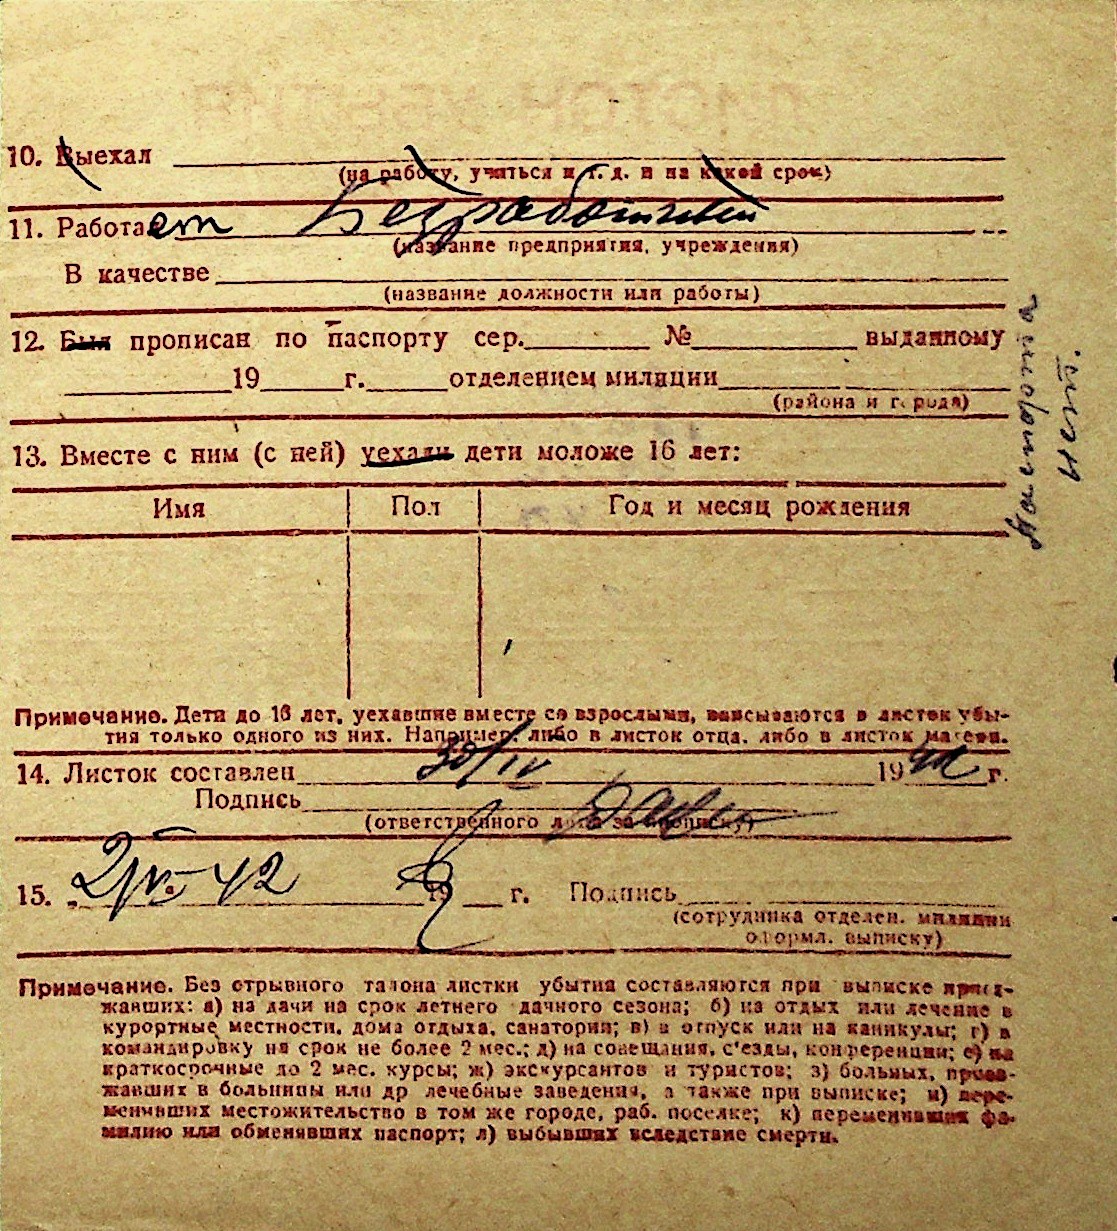 10. Выехал
(на работу, учиться и т. д. и на какой срок)
11. Работает Безработный
(название предприятия, учреждения)
В качестве
(название должности или работы)
12. Был прописан по паспорту сер. № выданному
19 г. отделением милиции
(района и города)
Паспорта
нет.
13. Вместе с ним (с ней) уехали дети моложе 16 лет:
Имя Пол Год и месяц рождения
Примечание. Дети до 16 лет, уехавшие вместе со взрослыми, вписываются в листок убы-
тия только одного из них. Например, либо в листок отца, либо в листок матери.
14. Листок составлен 30/IV 1942 г.
Подпись
(ответственного лица за прописку)
15. „ 2/V-42 19 г. Подпись
(сотрудника отделен. милиции
оформл. выписку)
Примечание. Без отрывного талона листки убытия составляются при выписке приез-
жавших: а) на дачи на срок летнего дачного сезона; б) на отдых или лечение в
курортные местности, дома отдыха, санатории; в) в отпуск или на каникулы; г) в
командировку на срок не более 2 мес.; д) на совещания, с'езды, конференции; е) на
краткосрочные до 2 мес. курсы; ж) экскурсантов и туристов; з) больных, приез-
жавших в больницы или др лечебные заведения, а также при выписке; и) пере-
менивших местожительство в том же городе, раб. поселке; к) переменивших фа-
милию или обменявших паспорт; л) выбывших вследствие смерти.